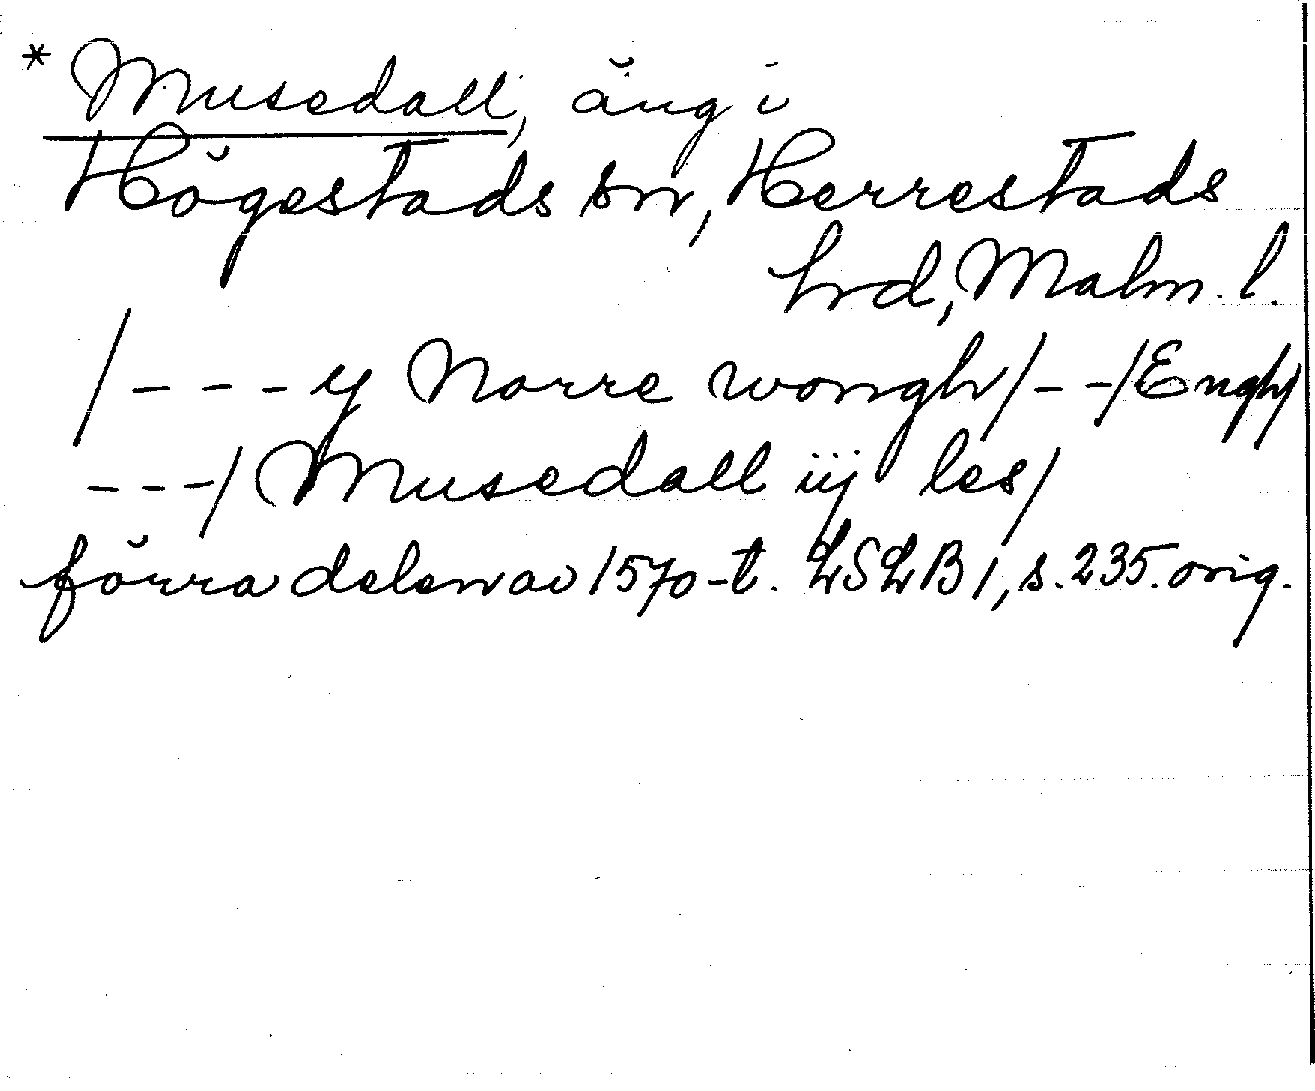 * Musedall, äng i
Högestads sn, Herrestads
hrd, Malm. l.
/ - - - y Norre wongh / - - / Engh /
- - - / Musedall iij les /
förra delen av 1570-t. LSLB 1, s. 235. orig.